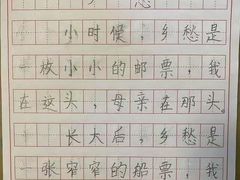 乡 愁
小时候，乡愁是
一枚小小的邮票，我
在这头，母亲在那头。
长大后，乡愁是
一张窄窄的船票，我